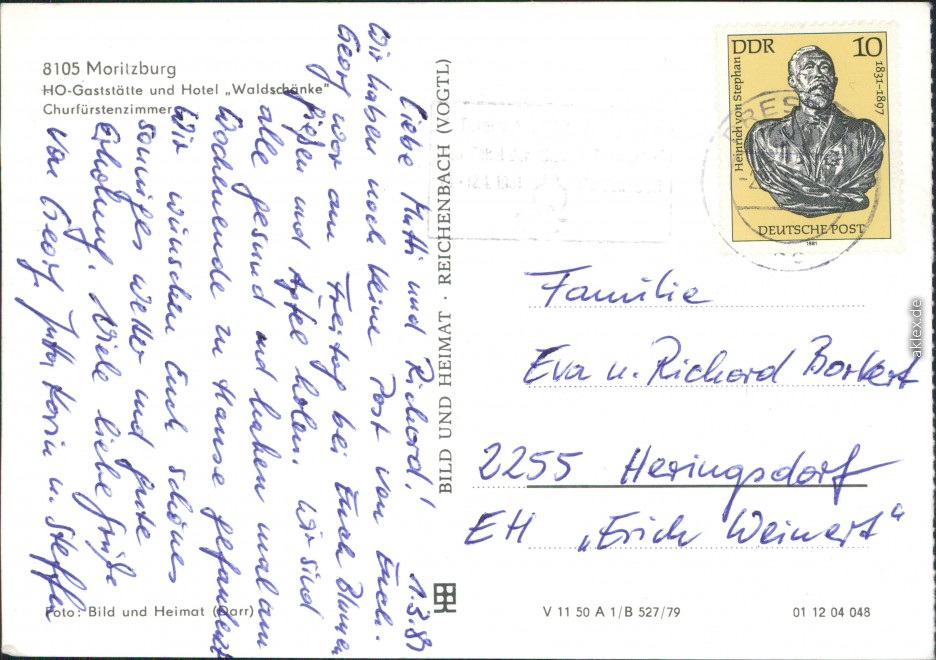 8105 Moritzburg
HO-Gaststätte und Hotel „Waldschänke"
Churfürstenzimmer
Liebe Mutti und Richard! 1.9.81
Wir haben noch keine Post von Euch.
Georg war am Freitag bei Euch Blumen
gießen und Äpfel holen. Wir sind
alle gesund und haben mal am
Wochenende zu Hause gefaulenzt
Wir wünschen Euch schönes
sonniges Wetter und gute
Erholung. Viele liebe Grüße
von Georg, Jutta Karin u. Steffen
Foto: Bild und Heimat (Darr)
BILD UND HEIMAT · REICHENBACH (VOGTL)
DDR 10
Heinrich von Stephan
1831-1897
DEUTSCHE POST
1981
DRES
Familie
Eva u. Richard Borkert
2255 Heringsdorf
EH „Erich Weinert"
V 11 50 A 1/B 527/79
01 12 04 048
aklex.de